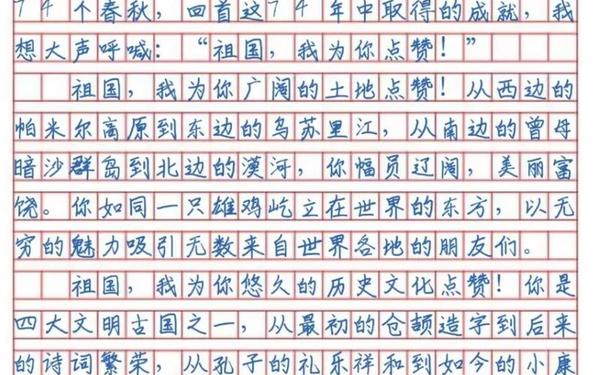 74个春秋，回首这74年中取得的成就，我
想大声呼喊：“祖国，我为你点赞！”
祖国，我为你广阔的土地点赞！从西边的
帕米尔高原到东边的乌苏里江，从南边的曾母
暗沙群岛到北边的漠河，你幅员辽阔，美丽富
饶。你如同一只雄鸡屹立在世界的东方，以无
穷的魅力吸引无数来自世界各地的朋友们。
祖国，我为你悠久的历史文化点赞！你是
四大文明古国之一，从最初的仓颉造字到后来
的诗词繁荣，从孔子的礼乐祥和到如今的小康